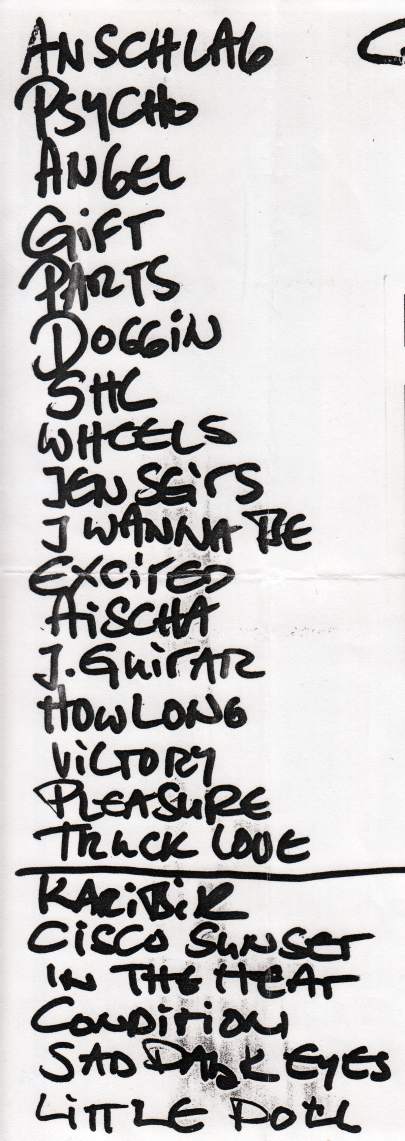 ANSCHLAG
PSYCHO
ANGEL
GiFT
PARTS
DOGGiN
SHC
WHEELS
JENSEiTS
J WANNA BE
EXCiTED
AiSCHA
J. GUiTAR
HOW LONG
ViCTORY
PLEASURE
TRUCK LOVE
KARiBiK
CiSCO SUNSET
IN THE HEAT
CONDiTiON
SAD DARK EYES
LiTTLE DOLL